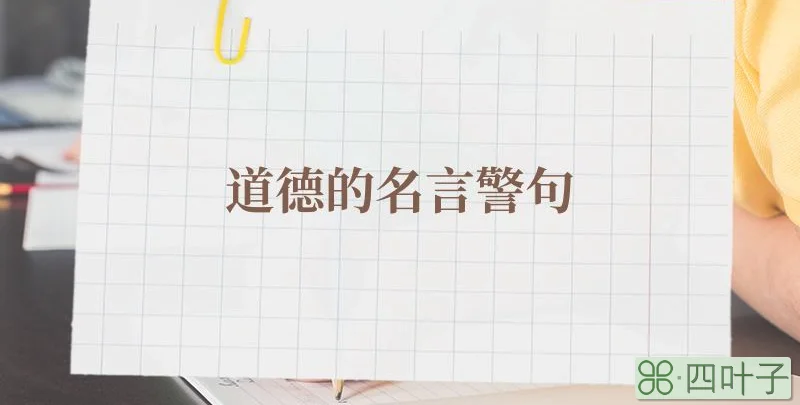 道德的名言警句
四叶子